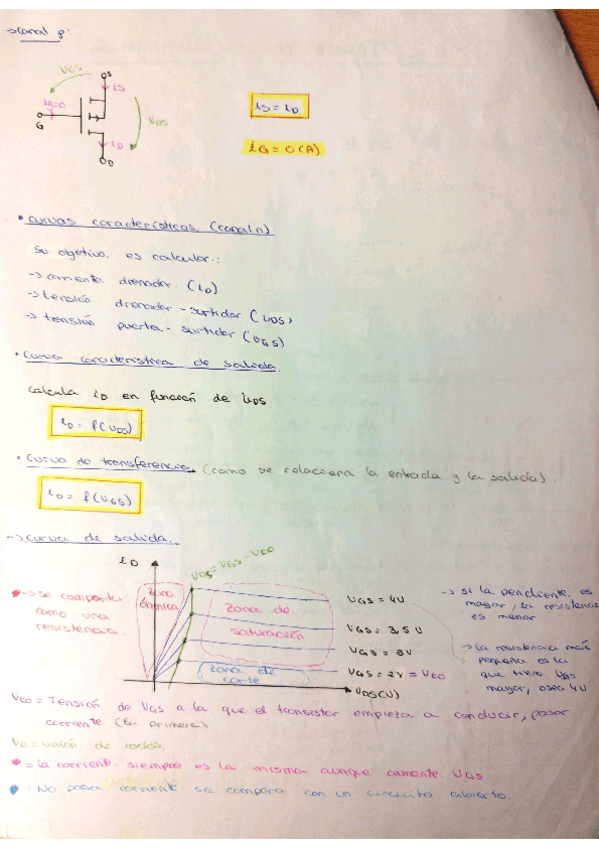 → Canal p:
UGS
S
iS
iG=0
G
UDS
iD
D
iS = iD
iG = 0 (A)
• Curvas características. (canal n)
Su objetivo. es calcular.:
→ corriente. drenador. (iD)
→ tensión drenador - surtidor (UDS)
→ tensión puerta - surtidor (UGS)
• Curva característica de salida.
Calcula iD en función de UDS
iD = f(UDS)
• Curva de transferencia. (como se relaciona la entrada y la salida).
iD = f(UGS)
→ curva de salida.
iD
UDS = UGS - UTO
→ se comporta
como una
resistencia.
zona
óhmica
zona de
saturación
zona de
corte
UGS = 4V
UGS = 3,5V
UGS = 3V
UGS = 2V =
UDS(V)
→ si la pendiente. es
mayor, la resistencia
es menor
→ la resistencia más
pequeña es la
que tiene UGS
mayor, o sea 4V
= Tensión de VGS a la que el transistor empieza a conducir, pasar
corriente (la primera)
= unión de codos.
= la corriente. siempre es la misma aunque aumente UGS
= No pasa corriente. se compara con un circuito abierto.